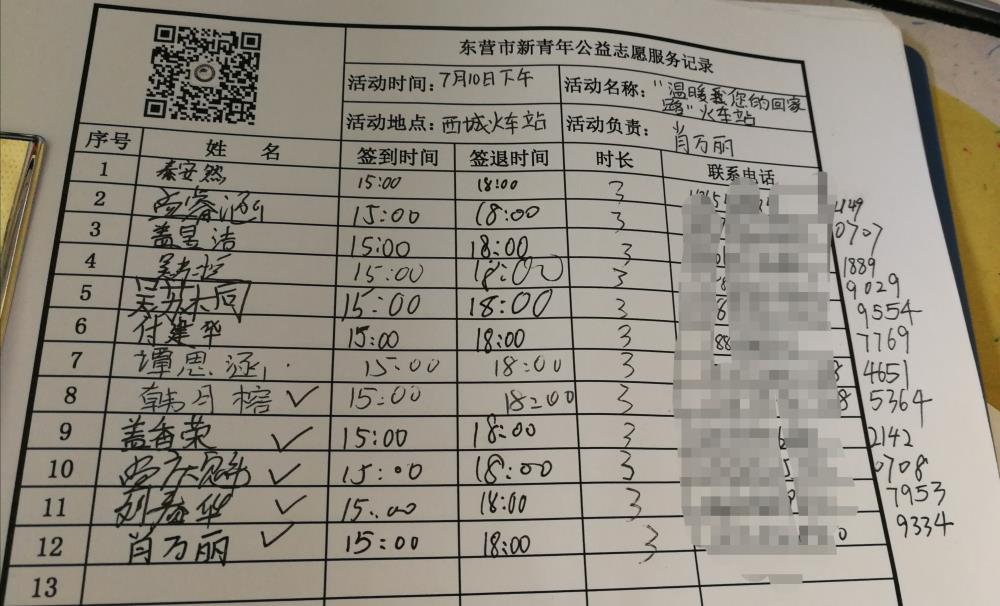 东营市新青年公益志愿服务记录
活动时间: 7月10日下午 活动名称: "温暖我您的回家路"火车站
活动地点: 西城火车站 活动负责: 肖万丽
序号 姓名 签到时间 签退时间 时长 联系电话
1 秦安然 15:00 18:00 3 4149
2 15:00 18:00 3 0707
3 盖昱洁 15:00 18:00 3 1889
4 15:00 18:00 3 9029
5 15:00 18:00 3 9554
6 付建华 15:00 18:00 3 7769
7 谭思涵 15:00 18:00 3 4651
8 韩月榕 ✓ 15:00 18:00 3 5364
9 盖香荣 ✓ 15:00 18:00 3 2142
10 ✓ 15:00 18:00 3 0708
11 刘春华 ✓ 15:00 18:00 3 7953
12 肖万丽 ✓ 15:00 18:00 3 9334
13